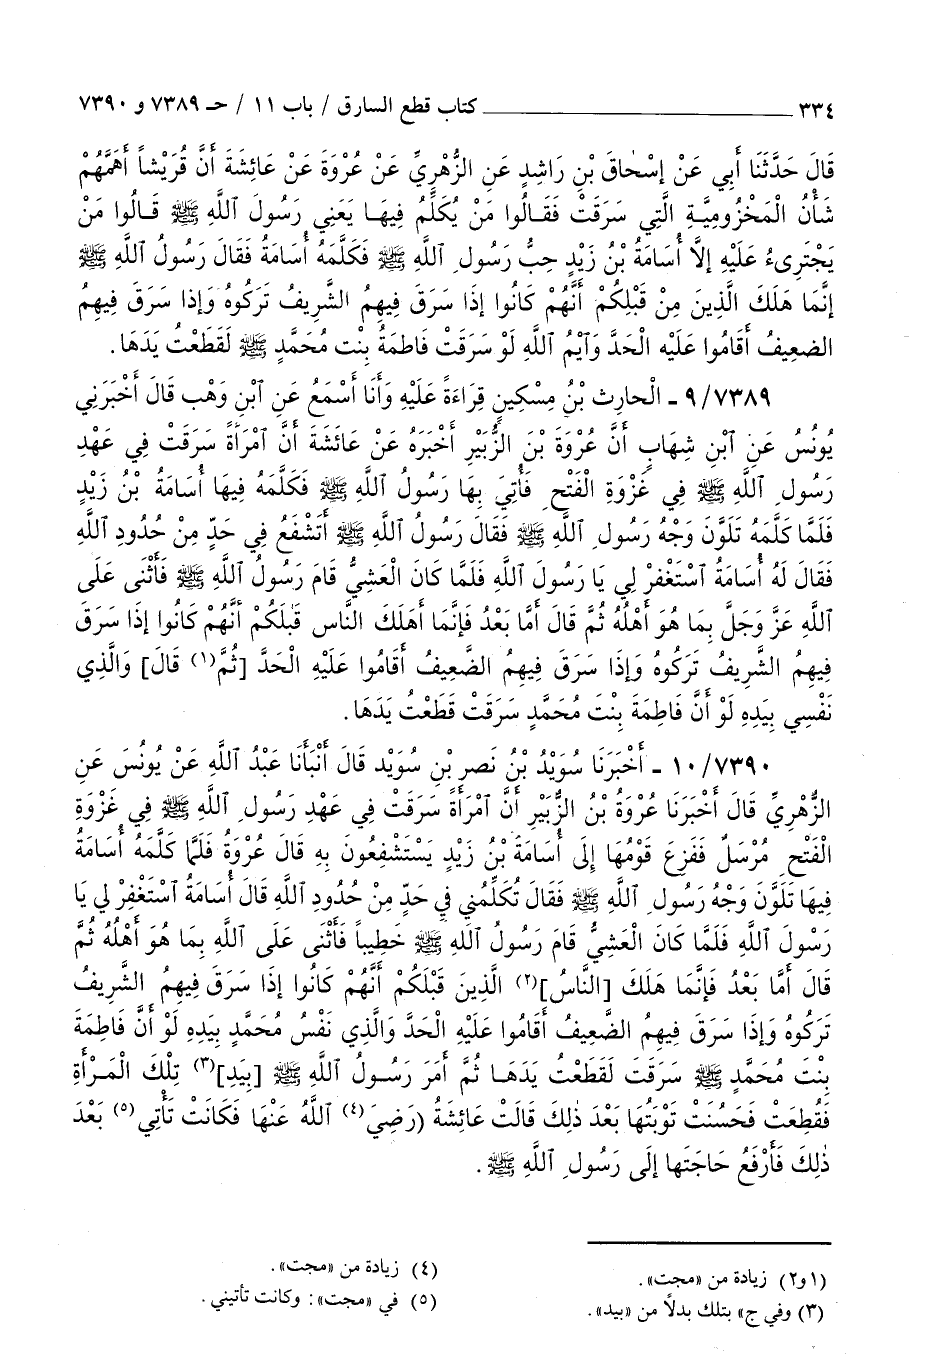 ٣٣٤ ــــــــــــ كتاب قطع السارق / باب ١١ / حـ ٧٣٨٩ و ٧٣٩٠
قَالَ حَدَّثَنَا أَبِي عَنْ إِسْحَاقَ بْنِ رَاشِدٍ عَنِ الزُّهْرِيِّ عَنْ عُرْوَةَ عَنْ عَائِشَةَ أَنَّ قُرَيْشاً أَهَمَّهُمْ
شَأْنُ الْمَخْزُومِيَّةِ الَّتِي سَرَقَتْ فَقَالُوا مَنْ يُكَلِّمُ فِيهَا يَعْنِي رَسُولَ ٱللَّهِ ﷺ قَالُوا مَنْ
يَجْتَرِىءُ عَلَيْهِ إِلَّا أُسَامَةُ بْنُ زَيْدٍ حِبُّ رَسُولِ ٱللَّهِ ﷺ فَكَلَّمَهُ أُسَامَةُ فَقَالَ رَسُولُ ٱللَّهِ ﷺ
إِنَّمَا هَلَكَ الَّذِينَ مِنْ قَبْلِكُمْ أَنَّهُمْ كَانُوا إِذَا سَرَقَ فِيهِمُ الشَّرِيفُ تَرَكُوهُ وَإِذَا سَرَقَ فِيهِمُ
الضَعِيفُ أَقَامُوا عَلَيْهِ الْحَدَّ وَٱيْمُ ٱللَّهِ لَوْ سَرَقَتْ فَاطِمَةُ بِنْتِ مُحَمَّدٍ ﷺ لَقَطَعْتُ يَدَهَا.
٩/٧٣٨٩ - الْحَارِثِ بْنُ مِسْكِينٍ قِرَاءَةً عَلَيْهِ وَأَنَا أَسْمَعُ عَنِ ٱبْنِ وَهْبٍ قَالَ أَخْبَرَنِي
يُونُسُ عَنِ ٱبْنِ شِهَابٍ أَنَّ عُرْوَةَ بْنَ الزُّبَيْرِ أَخْبَرَهُ عَنْ عَائَشَةَ أَنَّ ٱمْرَأَةً سَرَقَتْ فِي عَهْدِ
رَسُولِ ٱللَّهِ ﷺ فِي غَزْوَةِ الْفَتْحِ فَأُتِيَ بِهَا رَسُولُ ٱللَّهِ ﷺ فَكَلَّمَهُ فِيهَا أُسَامَةُ بْنُ زَيْدٍ
فَلَمَّا كَلَّمَهُ تَلَوَّنَ وَجْهُ رَسُولِ ٱللَّهِ ﷺ فَقَالَ رَسُولُ ٱللَّهِ ﷺ أَتَشْفَعُ فِي حَدٍّ مِنْ حُدُودِ ٱللَّهِ
فَقَالَ لَهُ أُسَامَةُ ٱسْتَغْفِرْ لِي يَا رَسُولَ ٱللَّهِ فَلَمَّا كَانَ الْعَشِيُّ قَامَ رَسُولُ ٱللَّهِ ﷺ فَأَثْنَى عَلَى
ٱللَّهِ عَزَّ وَجَلَّ بِمَا هُوَ أَهْلُهُ ثُمَّ قَالَ أَمَّا بَعْدُ فَإِنَّمَا أَهْلَكَ النَّاسَ قَبْلَكُمْ أَنَّهُمْ كَانُوا إِذَا سَرَقَ
فِيهِمُ الشَّرِيفُ تَرَكُوهُ وَإِذَا سَرَقَ فِيهِمُ الضَّعِيفُ أَقَامُوا عَلَيْهِ الْحَدَّ [ثُمَّ(١) قَالَ] وَالَّذِي
نَفْسِي بِيَدِهِ لَوْ أَنَّ فَاطِمَةَ بِنْتَ مُحَمَّدٍ سَرَقَتْ قَطَعْتُ يَدَهَا.
١٠/٧٣٩٠ - أَخْبَرَنَا سُوَيْدُ بْنُ نَصرِ بْنِ سُوَيْدٍ قَالَ أَنْبَأَنَا عَبْدُ ٱللَّهِ عَنْ يُونُسَ عَنِ
الزُّهْرِيِّ قَالَ أَخْبَرَنَا عُرْوَةُ بْنُ الزُّبَيْرِ أَنَّ ٱمْرَأَةً سَرَقَتْ فِي عَهْدِ رَسُولِ ٱللَّهِ ﷺ فِي غَزْوَةِ
الْفَتْحِ مُرْسَلٌ فَفَزِعَ قَوْمُهَا إِلَى أُسَامَةَ بْنِ زَيْدٍ يَسْتَشْفِعُونَ بِهِ قَالَ عُرْوَةُ فَلَمَّا كَلَّمَهُ أُسَامَةُ
فِيهَا تَلَوَّنَ وَجْهُ رَسُولِ ٱللَّهِ ﷺ فَقَالَ تُكَلِّمُنِي فِي حَدٍّ مِنْ حُدُودِ ٱللَّهِ قَالَ أُسَامَةُ ٱسْتَغْفِرْ لِي يَا
رَسُولَ ٱللَّهِ فَلَمَّا كَانَ الْعَشِيُّ قَامَ رَسُولُ ٱللَّهِ ﷺ خَطِيباً فَأَثْنَى عَلَى ٱللَّهِ بِمَا هُوَ أَهْلُهُ ثُمَّ
قَالَ أَمَّا بَعْدُ فَإِنَّمَا هَلَكَ [النَّاسُ](٢) الَّذِينَ قَبْلَكُمْ أَنَّهُمْ كَانُوا إِذَا سَرَقَ فِيهِمِ الشَّرِيفُ
تَرَكُوهُ وَإِذَا سَرَقَ فِيهِمُ الضَّعِيفُ أَقَامُوا عَلَيْهِ الْحَدَّ وَالَّذِي نَفْسُ مُحَمَّدٍ بِيَدِهِ لَوْ أَنَّ فَاطِمَةَ
بِنْتَ مُحَمَّدٍ ﷺ سَرَقَتْ لَقَطَعْتُ يَدَهَا ثُمَّ أَمَرَ رَسُولُ ٱللَّهِ ﷺ [بِيَدِ](٣) تِلْكَ الْمَرْأَةِ
فَقُطِعَتْ فَحَسُنَتْ تَوْبَتُهَا بَعْدَ ذٰلِكَ قَالَتْ عَائِشَةُ (رَضِيَ(٤) ٱللَّهُ عَنْهَا فَكَانَتْ تَأْتِي(٥) بَعْدَ
ذٰلِكَ فَأَرْفَعُ حَاجَتَها إِلَى رَسُولِ ٱللَّهِ ﷺ.
(١و٢) زيادة من «مجت».
(٣) وفي ج» بتلك بدلاً من «بيد».
(٤) زيادة من «مجت».
(٥) في «مجت»: وكانت تأتيني.